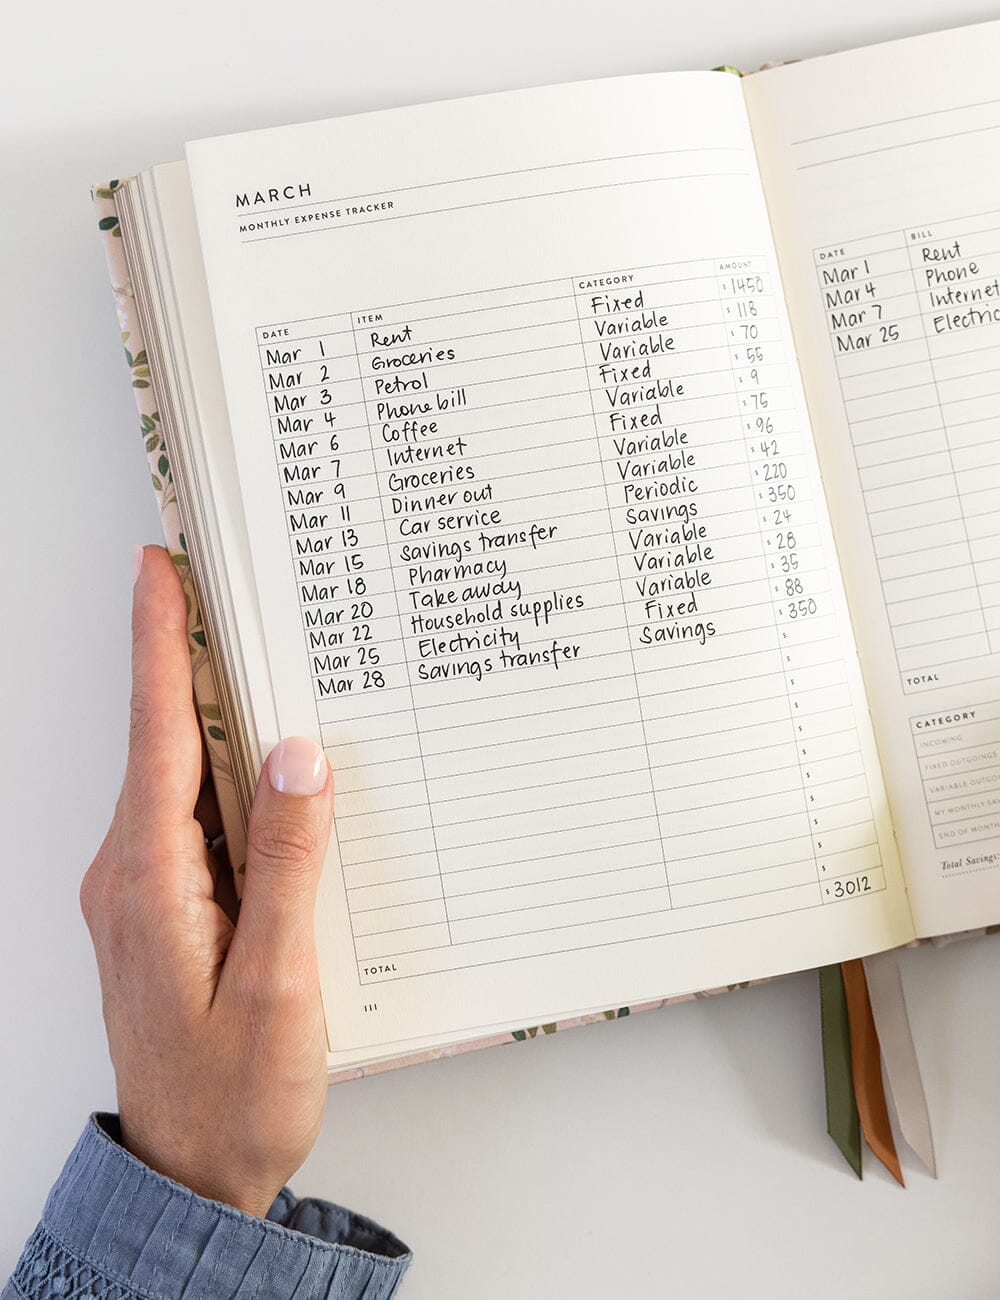 MARCH
MONTHLY EXPENSE TRACKER
DATE ITEM CATEGORY AMOUNT
Mar 1 Rent Fixed $ 1450
Mar 2 Groceries Variable $ 118
Mar 3 Petrol Variable $ 70
Mar 4 Phone bill Fixed $ 55
Mar 6 Coffee Variable $ 9
Mar 7 Internet Fixed $ 75
Mar 9 Groceries Variable $ 96
Mar 11 Dinner out Variable $ 42
Mar 13 Car service Periodic $ 220
Mar 15 Savings transfer Savings $ 350
Mar 18 Pharmacy Variable $ 24
Mar 20 Take away Variable $ 28
Mar 22 Household supplies Variable $ 35
Mar 25 Electricity Fixed $ 88
Mar 28 Savings transfer Savings $ 350
$
$
$
$
$
$
$
$
$
$
$
TOTAL $ 3012
111
DATE BILL
Mar 1 Rent
Mar 4 Phone
Mar 7 Internet
Mar 25 Electric
TOTAL
CATEGORY
INCOMING
FIXED OUTGOINGS
VARIABLE OUTGO
MY MONTHLY SA
END OF MONTH
Total Savings: